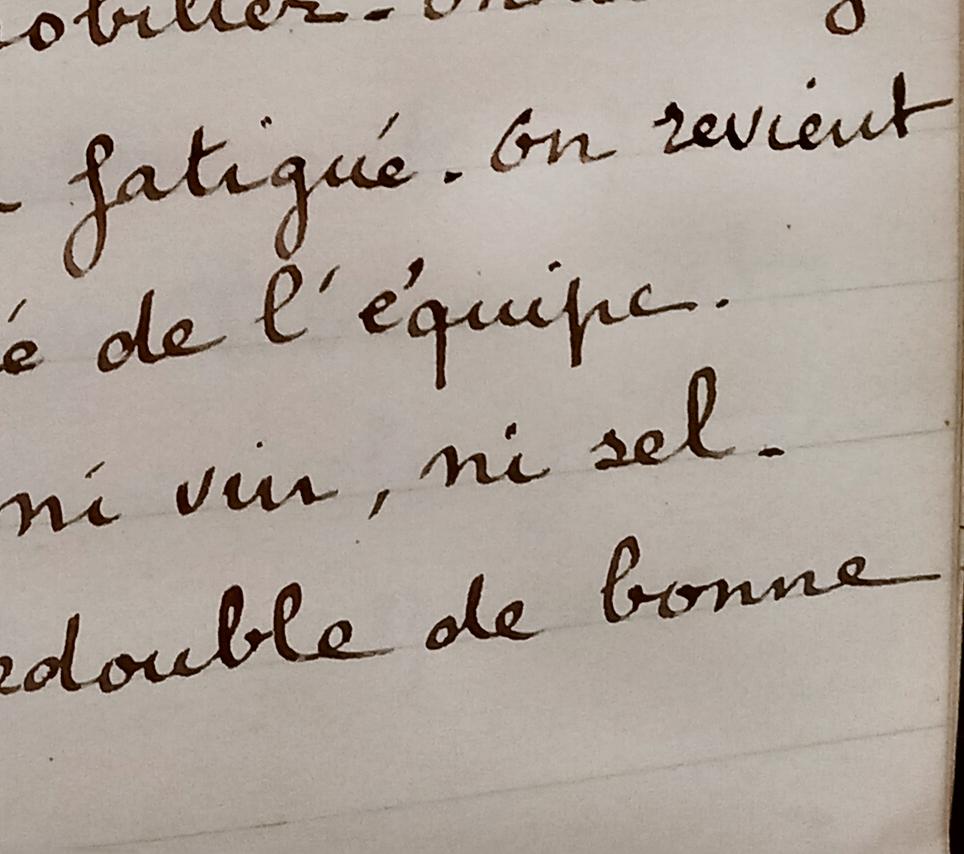 obilier.
fatigué. On revient
é de l'équipe.
ni vin, ni sel.
edouble de bonne